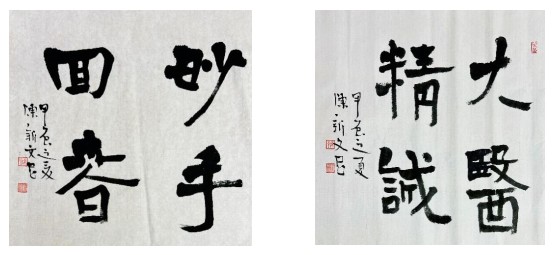 妙手
回春
甲辰之夏
陳新文
大醫
精誠
甲辰之夏
陳新文